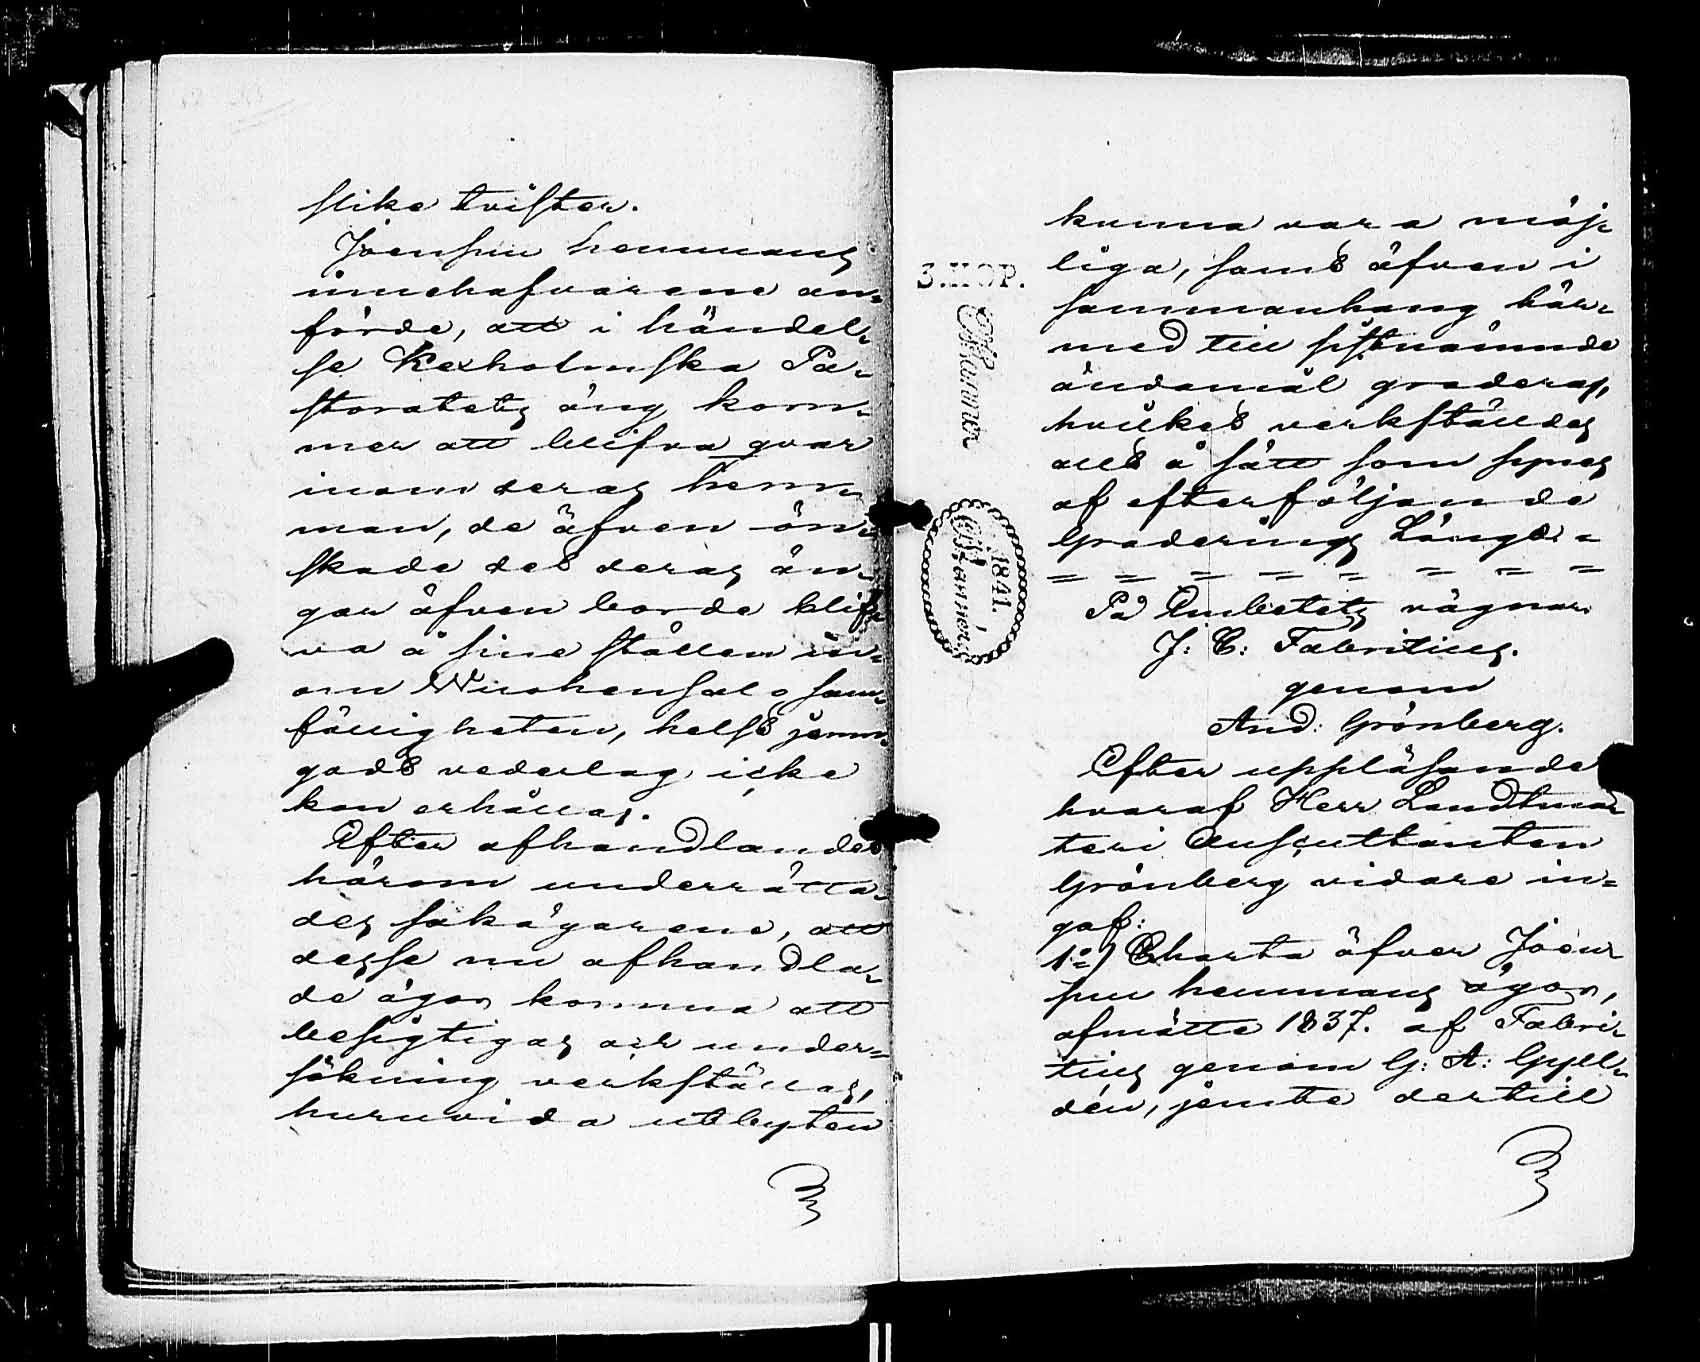 slike tvister.
Joensuu hemmans
innehafvarene an-
förde, att i händel-
se Kexholmska Pa-
storatets äng kom-
mer att blifva qvar
inom deras hem-
man, de äfven ön-
skade det deras än-
gar äfven borde blif-
va å sine ställen in-
om samm-
fälligheten, helst jemn-
godt vederlag icke
kan erhållas.
Efter afhandlandet
härom underrätta-
des sakägarene, att
desse nu afhandla-
de ägor komma att
besigtigas och under-
sökning verkställas,
huruvida utbyten
3.KOP.
1841.
kunna vara möj-
liga, samt äfven i
sammanhang här-
med till sistnämnde
ändamål graderas,
hvilket verkställdes
allt å sätt som synes
af efterföljande
Graderings Längd. =
= = = = = = = =
På Embetets vägnar
J: C: Fabritius.
genom
And: Grönberg.
Efter uppläsande
hvaraf Herr Landtmä-
teri Auscultanten
Grönberg vidare in-
gaf:
1:o) Charta öfver Joen-
suu hemmans ägor,
afmätte 1837. af Fabri-
tius genom G: A: Gyll-
dén, jemte dertill